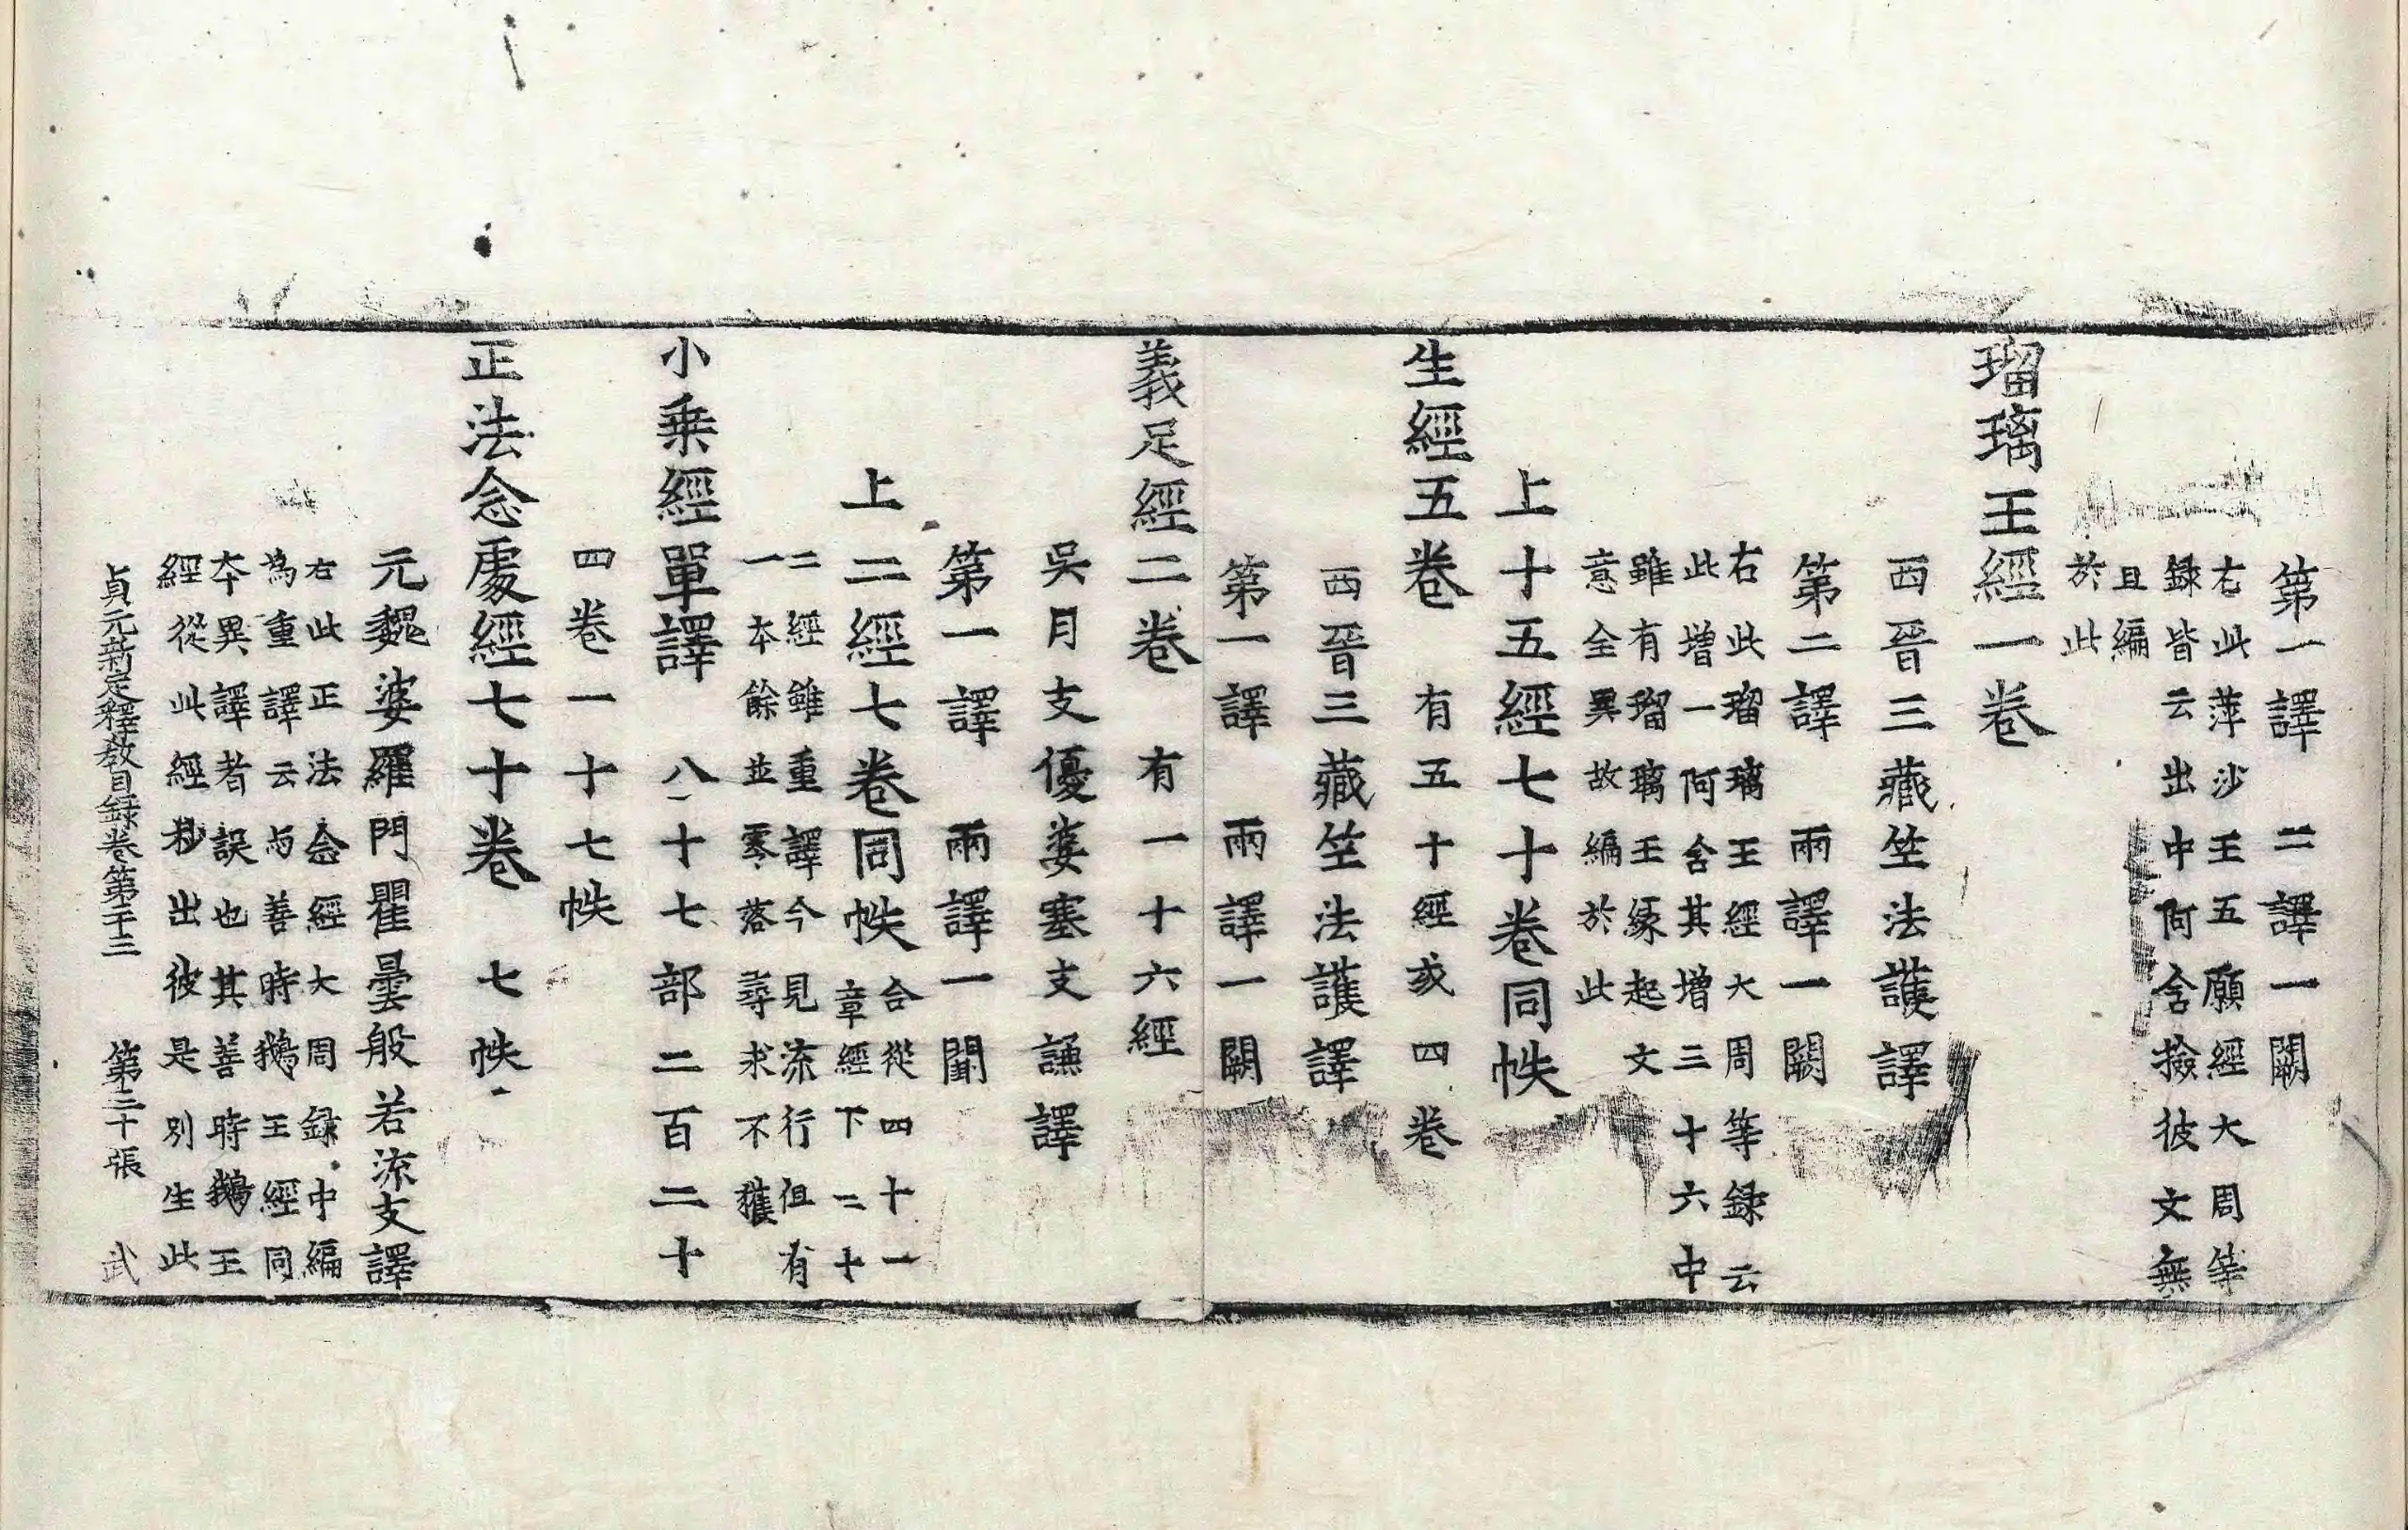 第一譯 二譯一闕
右此蓱沙王五願經大周等
録皆云出中阿含撿彼文無
且編
於此
瑠璃王經一卷
西晉三藏竺法護譯
第二譯 兩譯一闕
右此瑠璃王經大周等録云
此增一阿含其增三十六中
雖有瑠璃王縁起文
意全異故編於此
上十五經七十卷同帙
生經五卷 有五十經或四卷
西晉三藏竺法護譯
第一譯 兩譯一闕
義足經二卷 有一十六經
吳月支優婆塞支謙譯
第一譯 兩譯一闕
上二經七卷同帙 合從四十一
章經下二十
二經雖重譯今見流行但有
一本餘並零落尋求不獲
小乗經單譯 八十七部二百二十
四卷一十七帙
正法念處經七十卷 七帙
元魏婆羅門瞿曇般若流支譯
右此正法念經大周録中編
為重譯云与善時鵝王經同
本異譯者誤也其善時鵝王
經從此經抄出彼是別生此
貞元新定釋教目録卷第二十三 第二十張 武